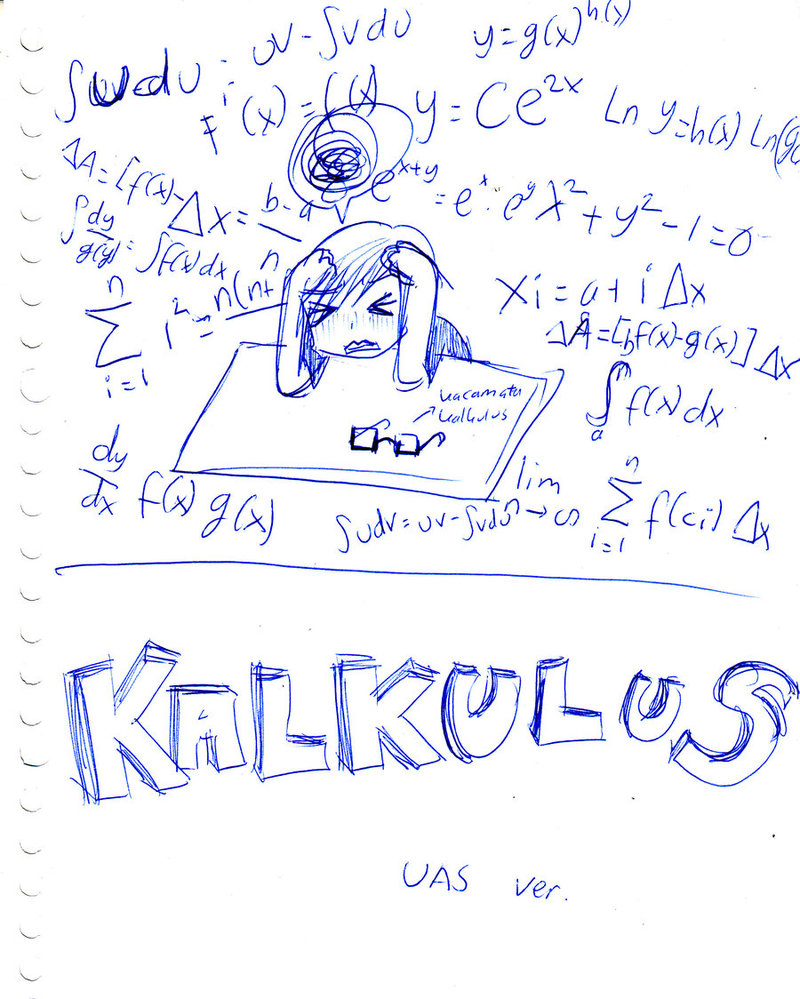 ∫udv = uv - ∫vdu
y = g(x)^h(x)
F'(x) = f(x)
y = Ce^2x
Ln y = h(x) Ln(g(
ΔA = [f(x) -
Δx = b - a
n
e^x+y = e^x · e^y
x² + y² - 1 = 0
∫ dy/g(y) = ∫f(x) dx
n
∑ i² = n(n+
i=1
xi = a + i Δx
ΔA = [f(x) - g(x)] Δx
b
∫ f(x) dx
a
kacamata
kalkulus
dy
dx f(x) g(x)
∫udv = uv - ∫vdu
lim
n → ∞
n
∑ f(ci) Δx
i=1
KALKULUS
UAS ver.